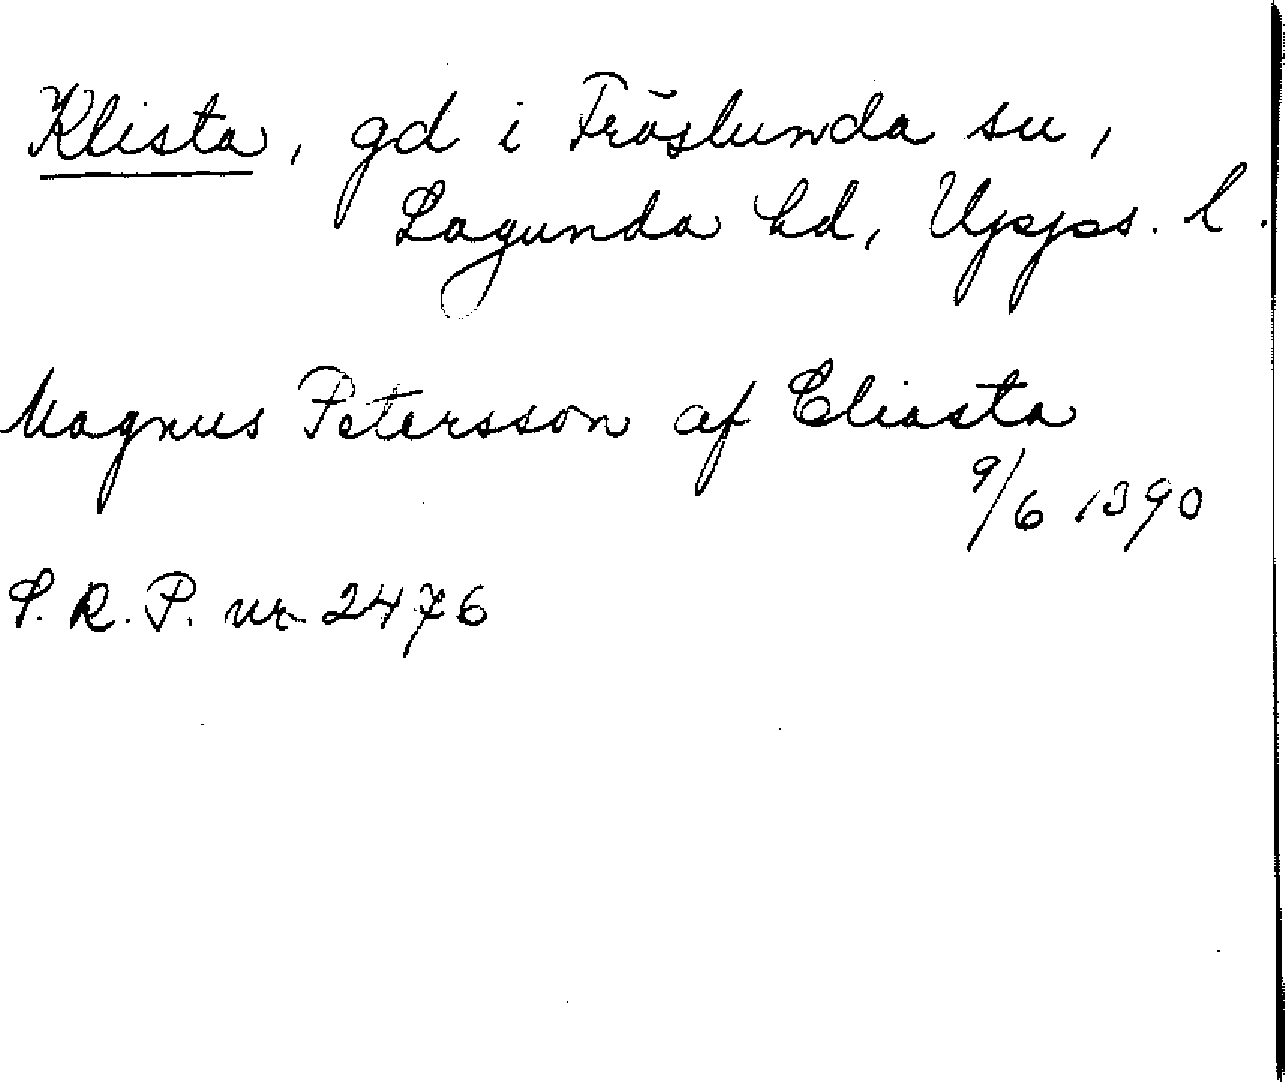 Klista, gd i Fröslunda sn,
Lagunda hd, Upps. l.
Magnus Petersson af Cliasta
9/6 1390
S. R. P. nr 2476